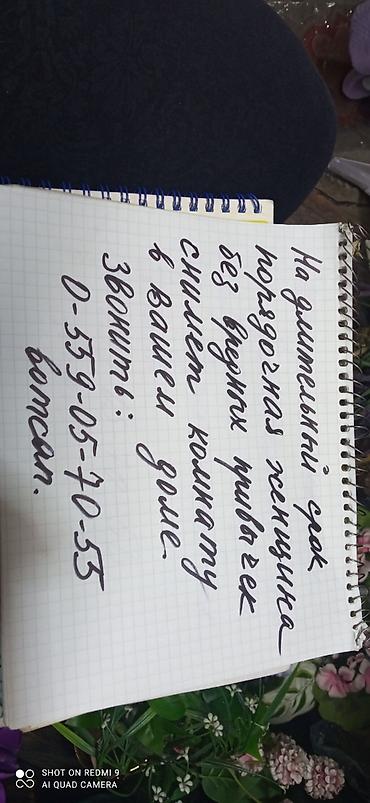 На длительный срок
порядочная женщина
без вредных привычек
снимет комнату
в вашем доме.
Звонить:
0-559-05-70-55
ватсап.
SHOT ON REDMI 9
AI QUAD CAMERA